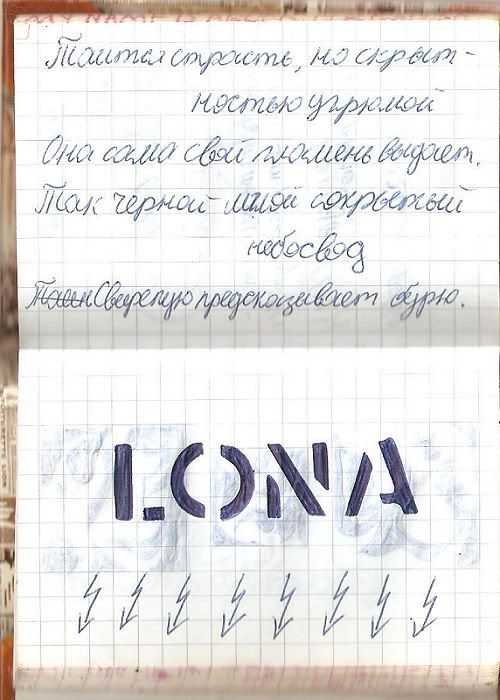 MY NAME IS
Таится страсть, но скрыт-
ностью угрюмой
Она сама свой пламень выдает.
Так черной мглой сокрытый
небосвод
Свирепую предсказывает бурю.
LONA